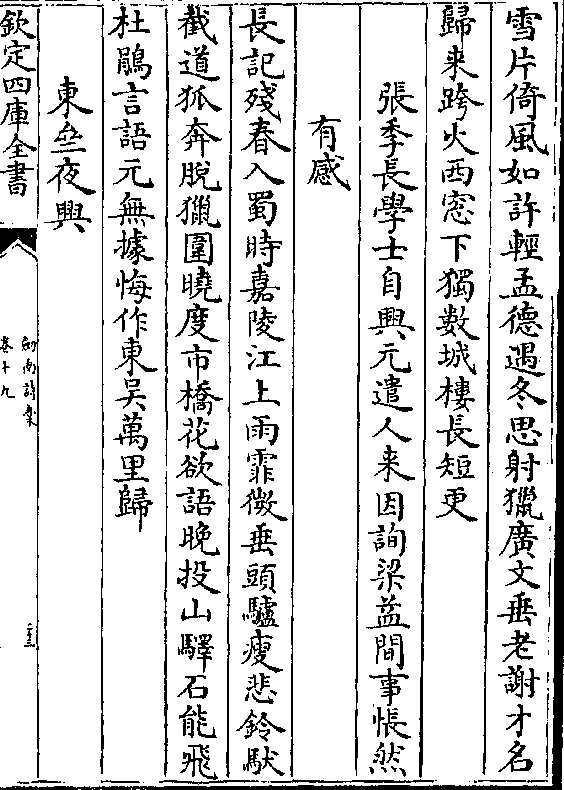 雪片倚風如許輕孟德遇冬思射獵廣文垂老謝才名
歸来跨火西窓下獨數城樓長短更
張季長學士自興元遣人来因詢梁益間事悵然
有感
長記殘春入蜀時嘉陵江上雨霏微垂頭驢瘦悲鈴馱
截道狐奔脫獵圍曉度市橋花欲語晚投山驛石能飛
杜鵑言語元無據悔作東吳萬里歸
東亝夜興
欽定四庫全書
劍南詩稾
卷十九